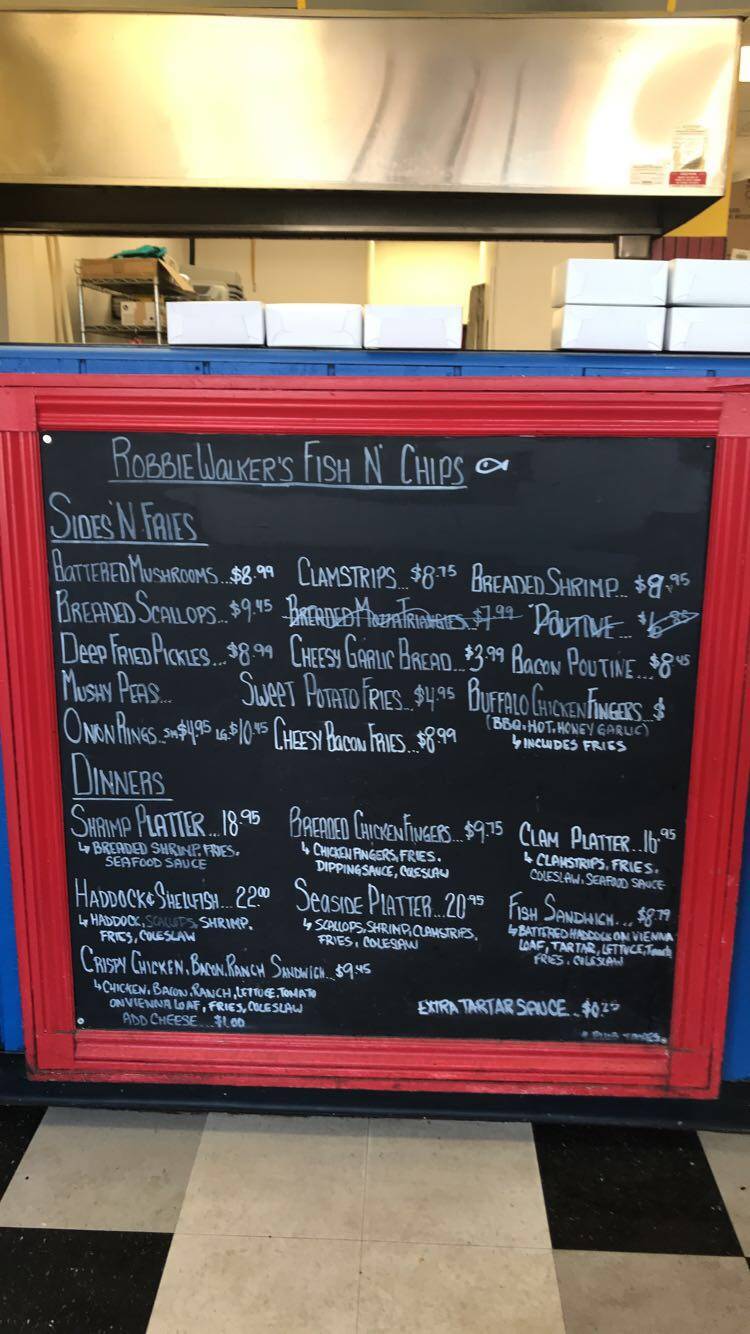 ROBBIE WALKER'S FISH N' CHIPS
SIDES 'N FRIES
BATTERED MUSHROOMS...$8.99 CLAMSTRIPS...$8.75 BREADED SHRIMP...$9.95
BREADED SCALLOPS...$9.45 BREADED MOZZA TRIANGLES...$7.99 POUTINE...
DEEP FRIED PICKLES...$8.99 CHEESY GARLIC BREAD...$3.99 BACON POUTINE...$8.45
MUSHY PEAS... SWEET POTATO FRIES...$4.95 BUFFALO CHICKEN FINGERS...$
(BBQ, HOT, HONEY GARLIC)
↳ INCLUDES FRIES
ONION RINGS...SM $4.95 LG.$10.45 CHEESY BACON FRIES...$8.99
DINNERS
SHRIMP PLATTER...18.95
↳ BREADED SHRIMP, FRIES,
SEAFOOD SAUCE
BREADED CHICKEN FINGERS...$9.75
↳ CHICKEN FINGERS, FRIES,
DIPPING SAUCE, COLESLAW
CLAM PLATTER...16.95
↳ CLAMSTRIPS, FRIES,
COLESLAW, SEAFOOD SAUCE
HADDOCK & SHELLFISH...22.00
↳ HADDOCK, SCALLOPS, SHRIMP,
FRIES, COLESLAW
SEASIDE PLATTER...20.95
↳ SCALLOPS, SHRIMP, CLAMSTRIPS,
FRIES, COLESLAW
FISH SANDWICH...$8.79
↳ BATTERED HADDOCK ON VIENNA
LOAF, TARTAR, LETTUCE, TOMATO
FRIES, COLESLAW
CRISPY CHICKEN, BACON, RANCH SANDWICH...$9.45
↳ CHICKEN, BACON, RANCH, LETTUCE, TOMATO
ON VIENNA LOAF, FRIES, COLESLAW
ADD CHEESE...$1.00
EXTRA TARTAR SAUCE...$0.25
* PLUS TAXES.